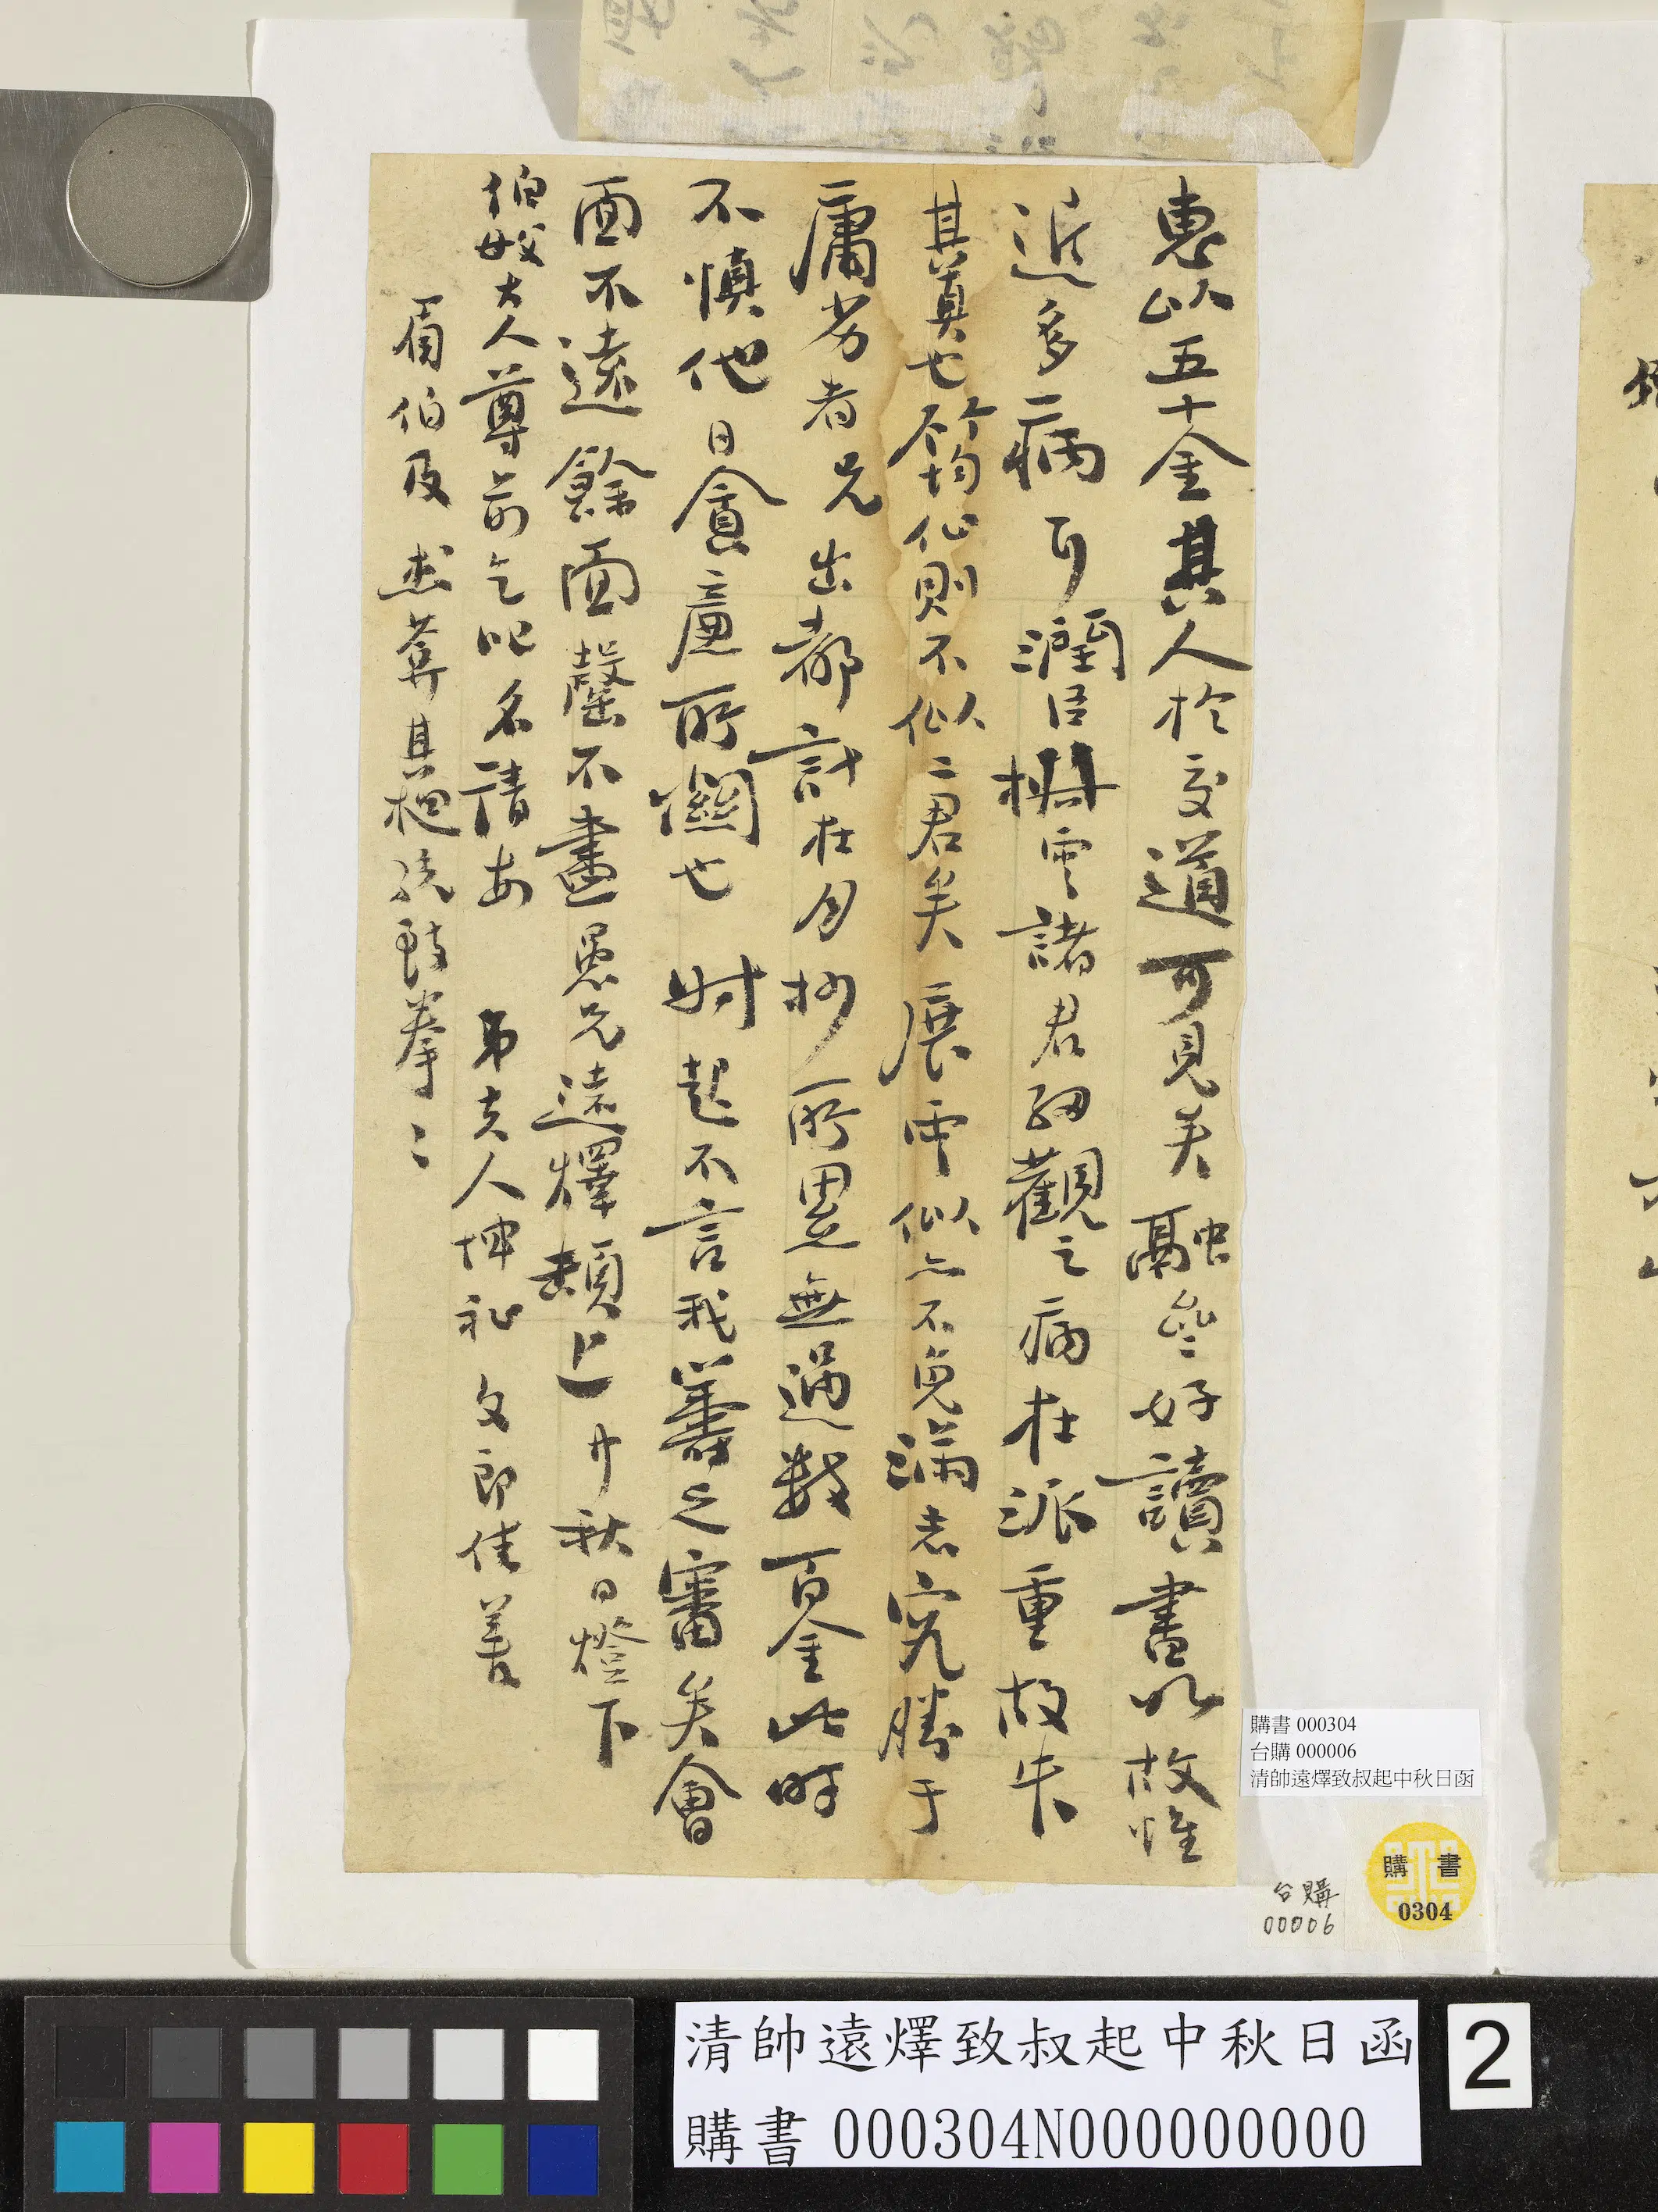 惠以五十金其人於交道可見矣融峯好讀書以故惟
近多病可潤臣樹雲諸君細觀之病在派重故失
其真也不均似則不似二君矣展雲似亦不免滿志究勝于
庸劣者兄出都計在月抄所累無過數百金此時
不慎他日貪廉所關也時起不言我籌之審矣會
面不遠餘面罄不盡愚兄遠燡頓上中秋日燈下
伯母大人尊前乞叱名請安 弟夫人坤祉 文郎佳善
眉伯及
拳〻
購書 000304
台購 000006
清帥遠燡致叔起中秋日函
台購
00006
購書
0304
清帥遠燡致叔起中秋日函
購書 000304N000000000
2